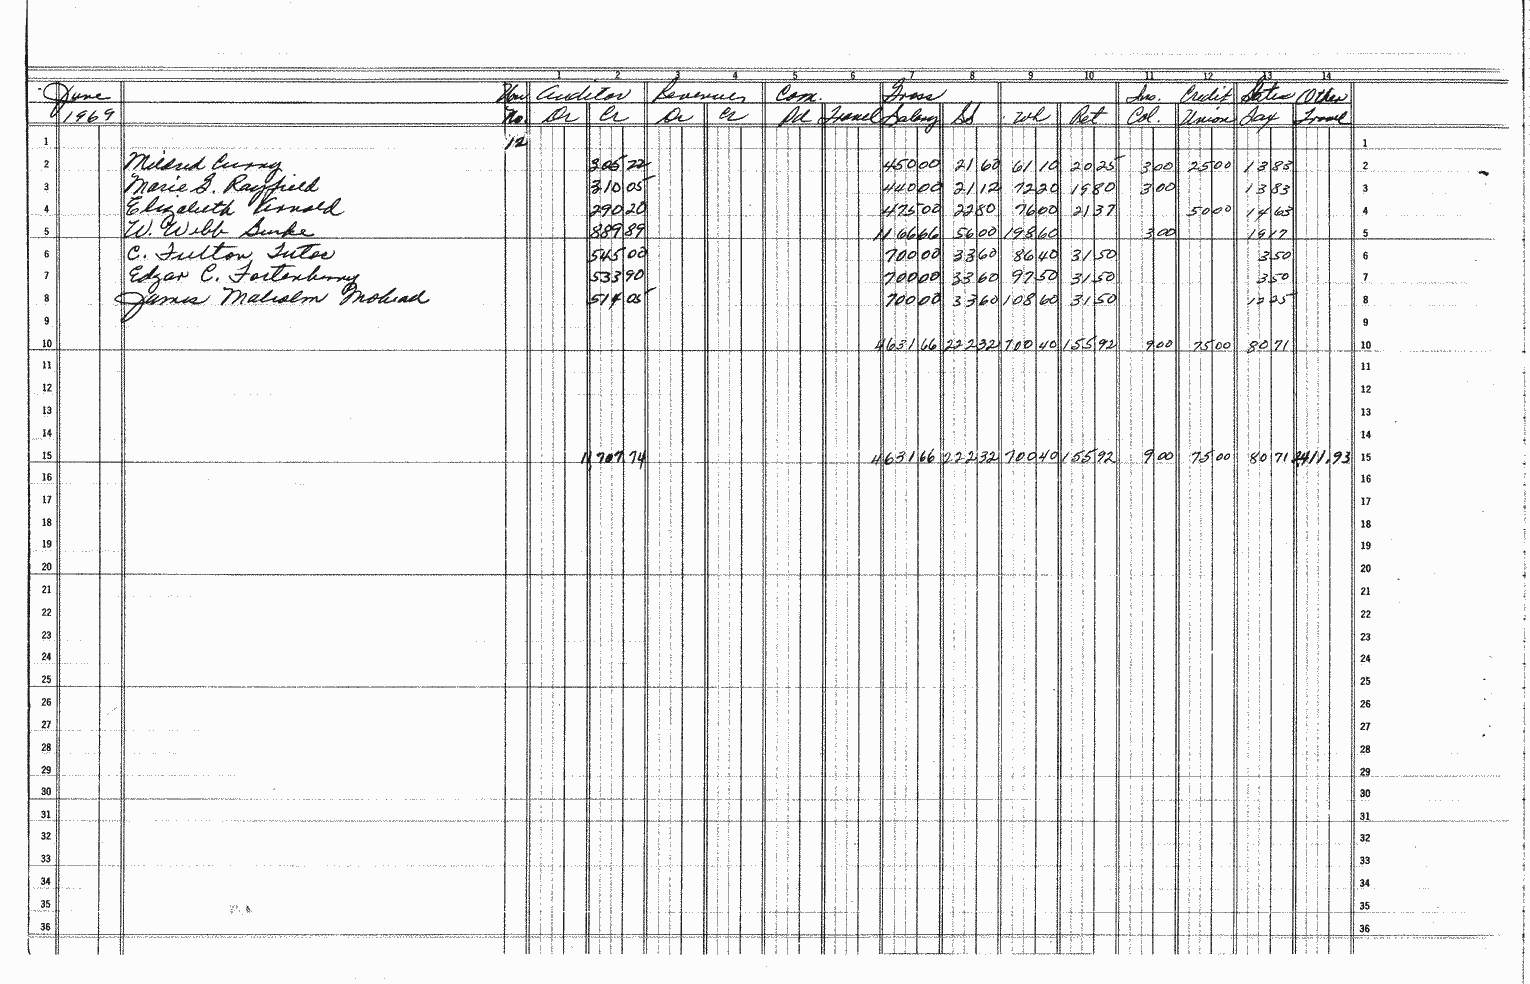 1 2 3 4 5 6 7 8 9 10 11 12 13 14
June Vou Auditor Revenues Com. Gross Ins. Credit States Other
1969 No. Dr Cr Dr Cr Pd Travel Salary SS WH Ret Col. Union Tax Travel
1 12 1
2 Mildred Curry 305 72 450 00 21 60 61 10 20 25 3 00 25 00 13 83 2
3 Marie G. Rayfield 310 05 440 00 21 12 72 20 19 80 3 00 13 83 3
4 Elizabeth Arnold 290 20 475 00 22 80 76 00 21 37 50 00 14 63 4
5 W. Webb Burke 889 89 1166 66 56 00 198 60 3 00 19 17 5
6 C. Fulton Tutor 545 00 700 00 33 60 86 40 31 50 3 50 6
7 Edgar C. Fortenberry 533 90 700 00 33 60 97 50 31 50 3 50 7
8 James Malcolm Mohead 514 05 700 00 33 60 108 60 31 50 12 25 8
9 9
10 4631 66 222 32 700 40 155 92 9 00 75 00 80 71 10
11 11
12 12
13 13
14 14
15 1,707 74 4631 66 222 32 700 40 155 92 9 00 75 00 80 71 2411.93 15
16 16
17 17
18 18
19 19
20 20
21 21
22 22
23 23
24 24
25 25
26 26
27 27
28 28
29 29
30 30
31 31
32 32
33 33
34 34
35 35
36 36